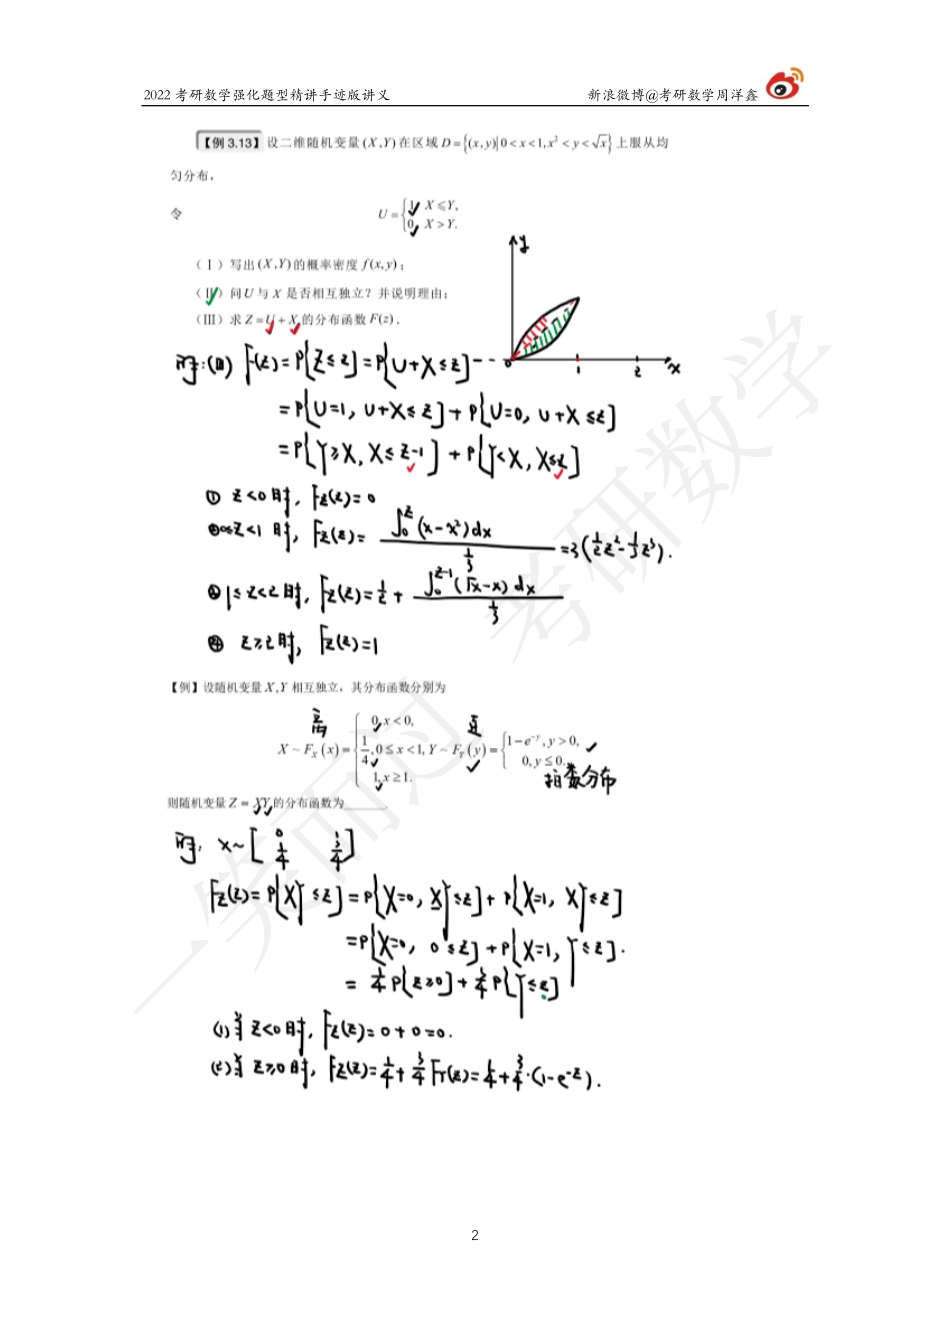 2022 考研数学强化题型精讲手迹版讲义 新浪微博@考研数学周洋鑫
【例 3.13】设二维随机变量 (X,Y) 在区域 D={(x,y)|0<x<1,x²<y<√x} 上服从均
匀分布，
令 U={1, X≤Y,
0, X>Y.
（Ⅰ）写出 (X,Y) 的概率密度 f(x,y)；
（Ⅱ）问 U 与 X 是否相互独立？并说明理由；
（Ⅲ）求 Z=U+X 的分布函数 F(z).
y
0 1 2 x
解:(Ⅲ) F(z)=P{Z≤z}=P{U+X≤z}
=P{U=1, U+X≤z}+P{U=0, U+X≤z}
=P{Y≥X, X≤z-1}+P{Y<X, X≤z}
① z<0时, Fz(z)=0
②0≤z<1时, Fz(z)= ∫₀^z (x-x²)dx / (1/3) =3(1/2 z²-1/3 z³).
③ 1≤z<2时, Fz(z)=1/2+ ∫₀^(z-1) (√x-x)dx / (1/3)
④ z≥2时, Fz(z)=1
【例】设随机变量 X,Y 相互独立，其分布函数分别为
离
X~F_X(x)={0,x<0, 1/4,0≤x<1, 1,x≥1. Y~F_Y(y)={1-e^(-y),y>0, 0,y≤0.
指数分布
则随机变量 Z=XY 的分布函数为______
解: X~[0 1
1/4 3/4]
Fz(z)=P{XY≤z}=P{X=0, XY≤z}+P{X=1, XY≤z}
=P{X=0, 0≤z}+P{X=1, Y≤z}.
=1/4 P{z≥0}+3/4 P{Y≤z}
(1)当 z<0时, Fz(z)=0+0=0.
(2)当 z≥0时, Fz(z)=1/4+3/4 F_Y(z)=1/4+3/4·(1-e^(-z)).
一笑而过 考研数学
2